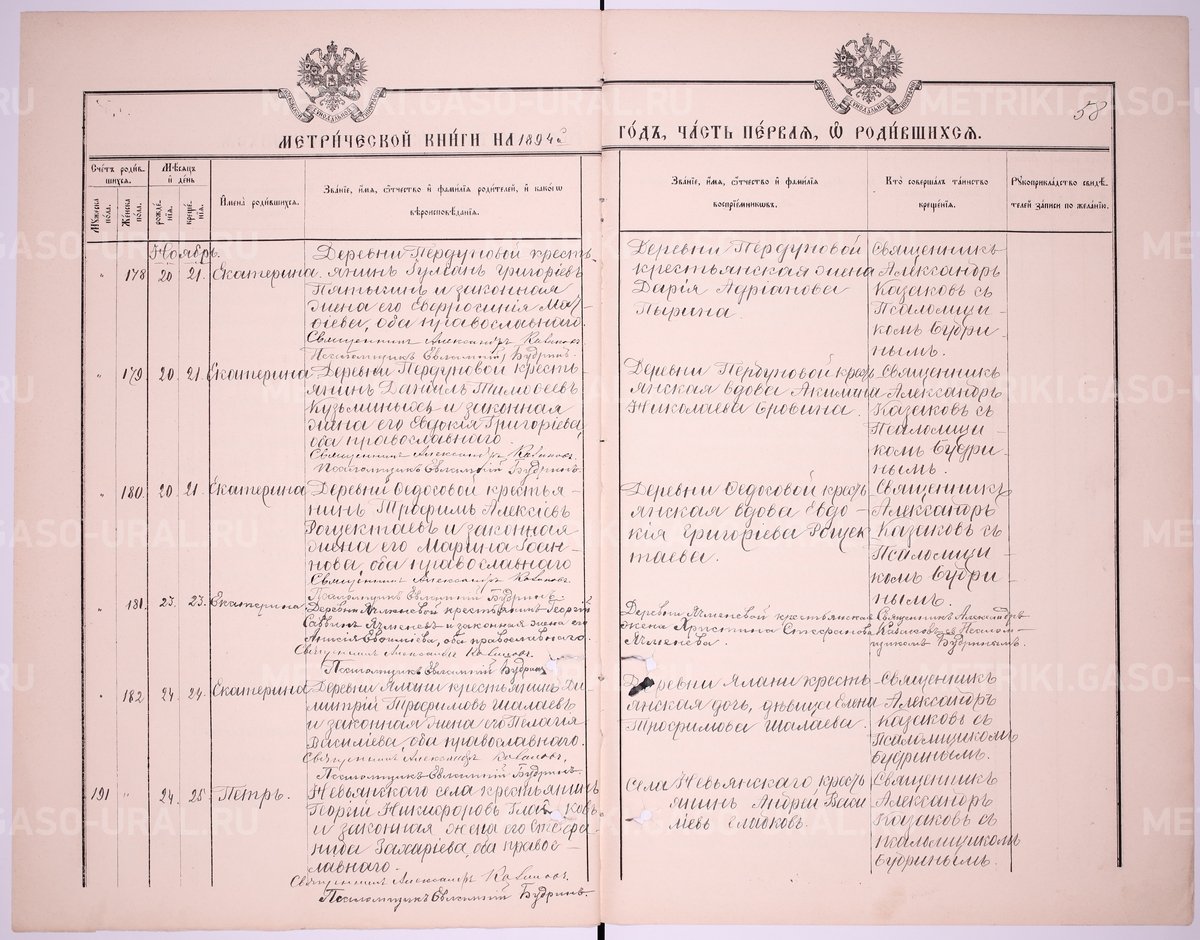 58
МЕТРИ́ЧЕСКОЙ КНИ́ГИ НА 1894
ГО́ДЪ, ЧА́СТЬ ПЕ́РВАЯ, Ѡ РОДИ́ВШИХСЯ.
Счетъ роди́вшихся.
Мѣсяцъ и день
Имена̀ роди́вшихся.
Зва́нїе, и́мя, ѻ́тчество и҆ фами́лїя роди́телей, и҆ како́гѡ
вѣроисповѣ́данїя.
Зва́нїе, и́мя, ѻ́тчество и҆ фами́лїя
воспрїе́мниковъ.
Кто̀ соверша́лъ та́инство
креще́нїя.
Рꙋкоприкла́дство свидѣ́-
телей за́писи по жела́нїю.
Мꙋ́жеска по́ла.
Же́нска по́ла.
рожде́нїя.
креще́нїя.
Ноябрь.
" 178 20 21. Екатерина.
Деревни Пердуновой кресть-
янинъ Григоріевъ
Пятыгинъ и законная
жена его Евфросинія Мат-
ѳіева, оба православнаго.
Священникъ Александръ Казаковъ
Псаломщикъ Евѳимій Будринъ.
Деревни Пердуновой
крестьянская жена
Дарія Адріанова
Пырина.
Священникъ
Александръ
Казаковъ съ
Псаломщи-
комъ Будри-
нымъ.
" 179. 20. 21. Екатерина.
Деревни Пердуновой кресть-
янинъ Даніилъ Тимоѳеевъ
Кузьминыхъ и законная
жена его Евдокія Григоріева,
оба православнаго.
Священникъ Александръ Казаковъ.
Псаломщикъ Евѳимій Будринъ.
Деревни Пердуновой кресть-
янская вдова Акилина
Николаева Еровина.
Священникъ
Александръ
Казаковъ съ
Псаломщи-
комъ Будри-
нымъ.
" 180. 20. 21. Екатерина
Деревни Ѳедосовой крестья-
нинъ Трофимъ Алексіевъ
Рощектаевъ и законная
жена его Марина Іоан-
нова, оба православнаго
Священникъ Александръ Казаковъ.
Псаломщикъ Евѳимій Будринъ.
Деревни Ѳедосовой кресть-
янская вдова Евдо-
кія Григоріева Рощек-
таева.
Священникъ
Александръ
Казаковъ съ
Псаломщи-
комъ Будри-
нымъ.
" 181. 23. 23. Екатерина.
Деревни Ячменевой крестьянинъ Георгій
Саввинъ Ячменевъ и законная жена его
Анисія Евѳиміева, оба православнаго.
Священникъ Александръ Казаковъ.
Псаломщикъ Евѳимій Будринъ
Деревни Ячменевой крестьянская
жена Христина Стефанова
Ячменева.
Священникъ Александръ
Казаковъ съ Псалом-
щикомъ Будринымъ.
" 182 24. 24. Екатерина
Деревни Ялани крестьянинъ Ди-
митрій Трофимовъ Шалаевъ
и законная жена его Пелагія
Василіева, оба православнаго.
Священникъ Александръ Казаковъ,
Псаломщикъ Евѳимій Будринъ.
Деревни Ялани кресть-
янская дочь, дѣвица Елена
Трофимова Шалаева.
Священникъ
Александръ
Казаковъ съ
Псаломщикомъ
Будринымъ.
191 " 24. 25. Петръ.
Невьянскаго села крестьянинъ
Георгій Никифоровъ
и законная жена его Стефа-
нида Захаріева, оба правос-
лавнаго.
Священникъ Александръ Казаковъ.
Псаломщикъ Евѳимій Будринъ.
Села Невьянскаго кресть-
янинъ Андрей Васи-
ліевъ Сладковъ.
Священникъ
Александръ
Казаковъ съ
псаломщикомъ
Будринымъ.
METRIKI.GASO-URAL.RU